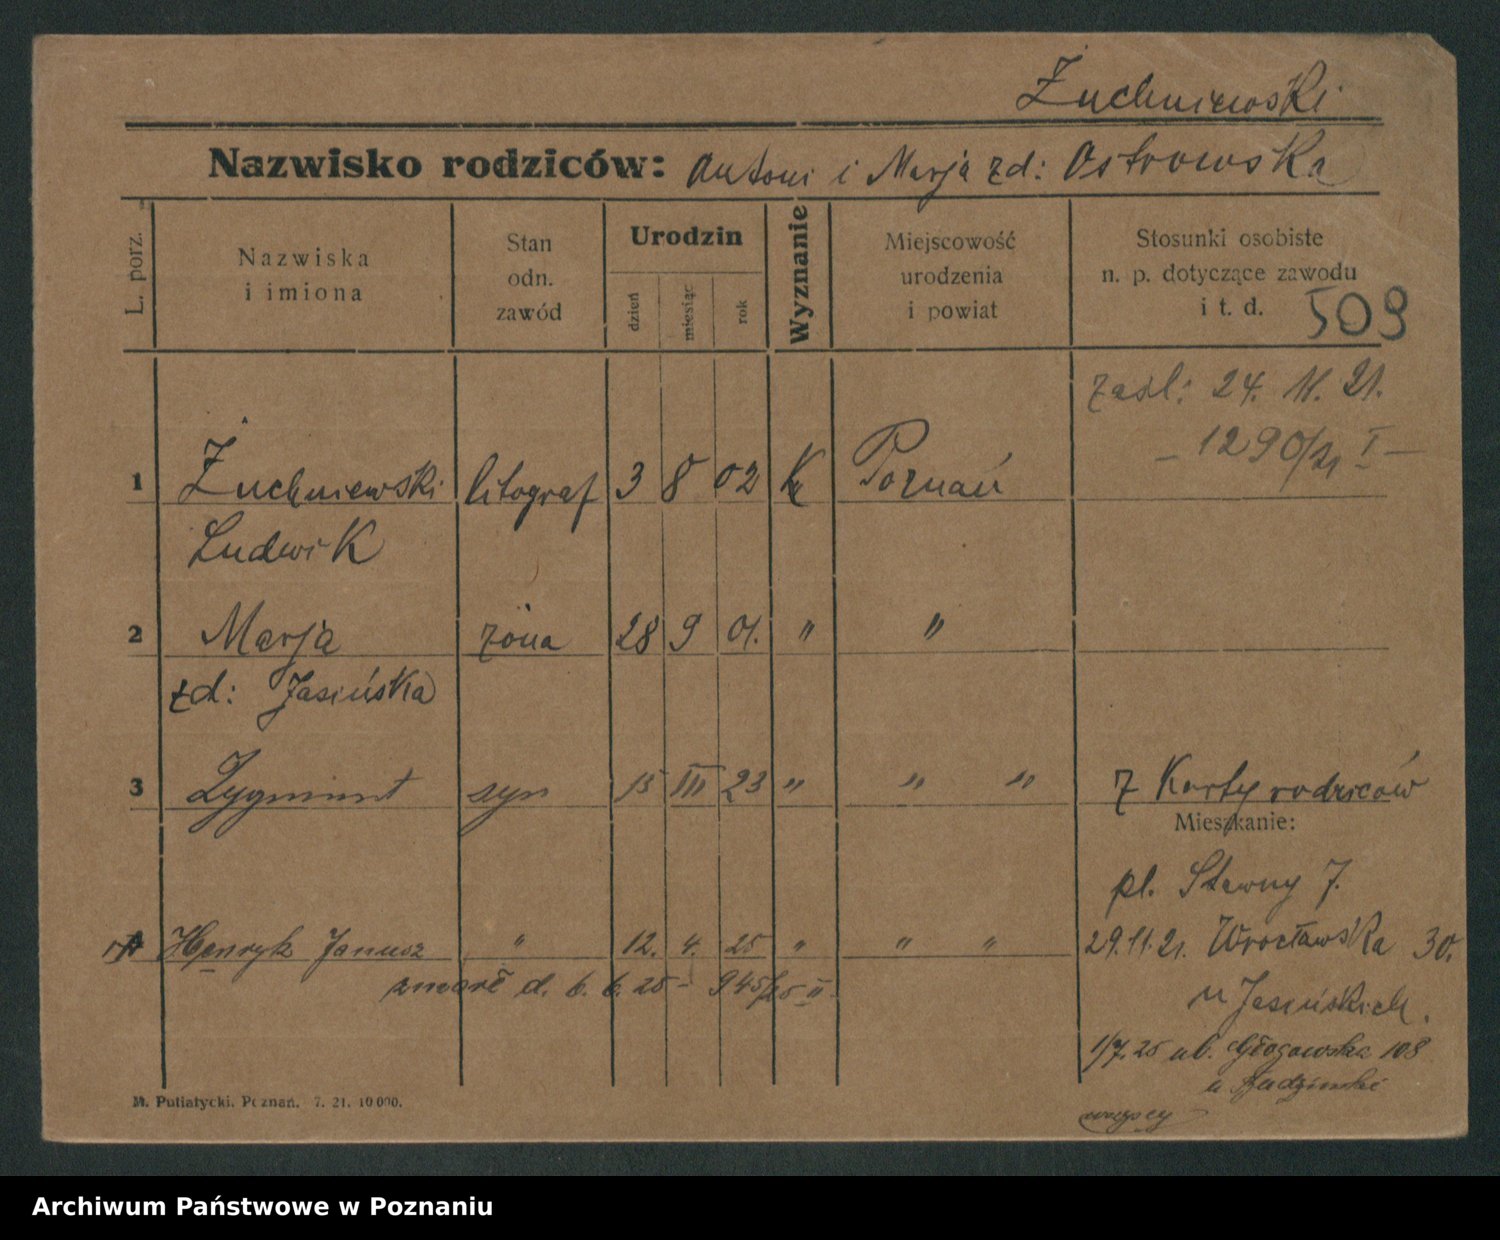 Żuchniewski
Nazwisko rodziców: Antoni i Marja zd: Ostrowska
L. porz.
Nazwiska i imiona
Stan odn. zawód
Urodzin
dzień miesiąc rok
Wyznanie
Miejscowość urodzenia i powiat
Stosunki osobiste n. p. dotyczące zawodu i t. d.
509
zaśl: 24. 11. 21.
– 1290/21 I –
1 Żuchniewski litograf 3 8 02 K Poznań
Ludwik
2 Marja żona 28 9 01. " "
zd: Jasińska
3 Zygmunt syn 15 III 23 " " " z Karty rodziców
Mieszkanie:
pl. Stawny 7.
4 Henryk Janusz " 12. 4. 25 " " " 29.11.21. Wrocławska 30.
zmarł d. 6. 6. 25 – 945/25 II
u Jasińskich.
1/7.25 ul. Głogowska 108
u
wszyscy
M. Putiatycki. Poznań. 7. 21. 10 000.
Archiwum Państwowe w Poznaniu